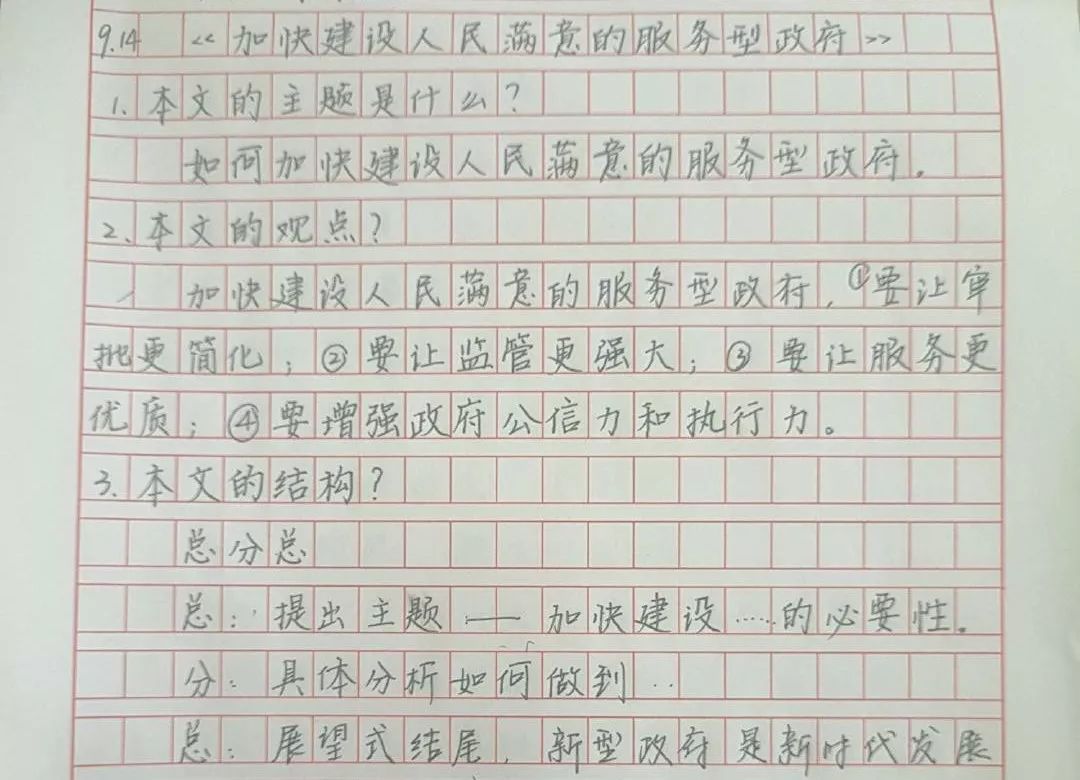 9.14 《加快建设人民满意的服务型政府》
1.本文的主题是什么?
如何加快建设人民满意的服务型政府。
2、本文的观点?
加快建设人民满意的服务型政府,①要让审
批更简化;②要让监管更强大;③要让服务更
优质;④要增强政府公信力和执行力。
3.本文的结构?
总分总
总:提出主题——加快建设……的必要性。
分:具体分析如何做到..
总:展望式结尾,新型政府是新时代发展